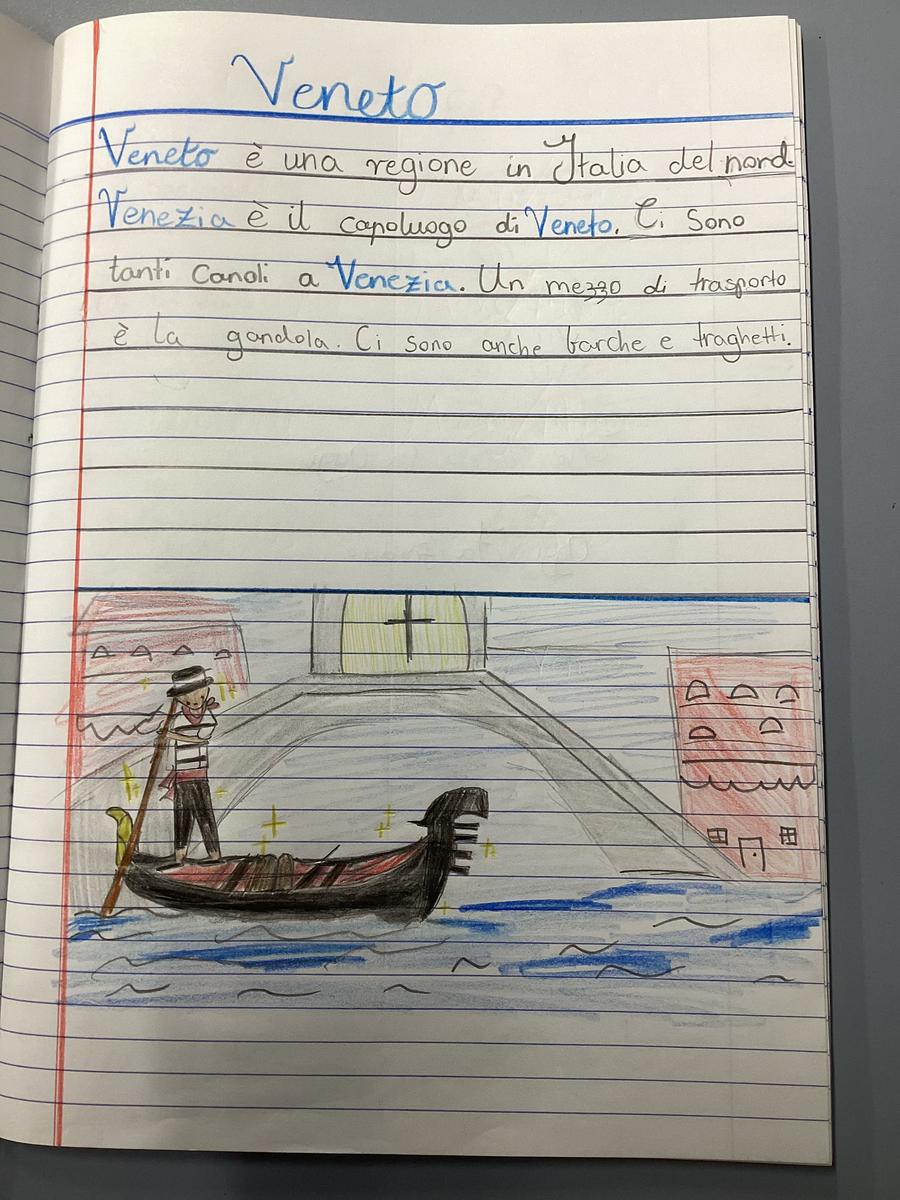 Veneto
Veneto è una regione in Italia del nord.
Venezia è il capoluogo di Veneto. Ci sono
tanti canali a Venezia. Un mezzo di trasporto
è la gondola. Ci sono anche barche e traghetti.